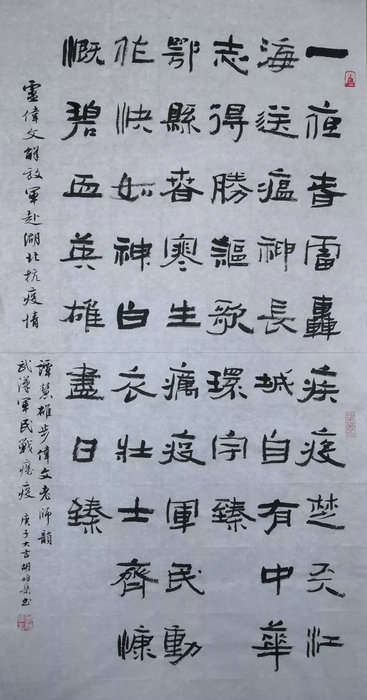 一夜春雷轟疾疫楚天江
海送瘟神長城自有中華
志得勝謳歌環宇臻
鄂縣春寒生癘疫軍民動
作快如神白衣壯士齊慷
慨碧血英雄盡日臻
盧偉文解放軍赴湖北抗疫情
譚慧雄步偉文老師韻
武漢軍民戰癘疫 庚子大吉胡書